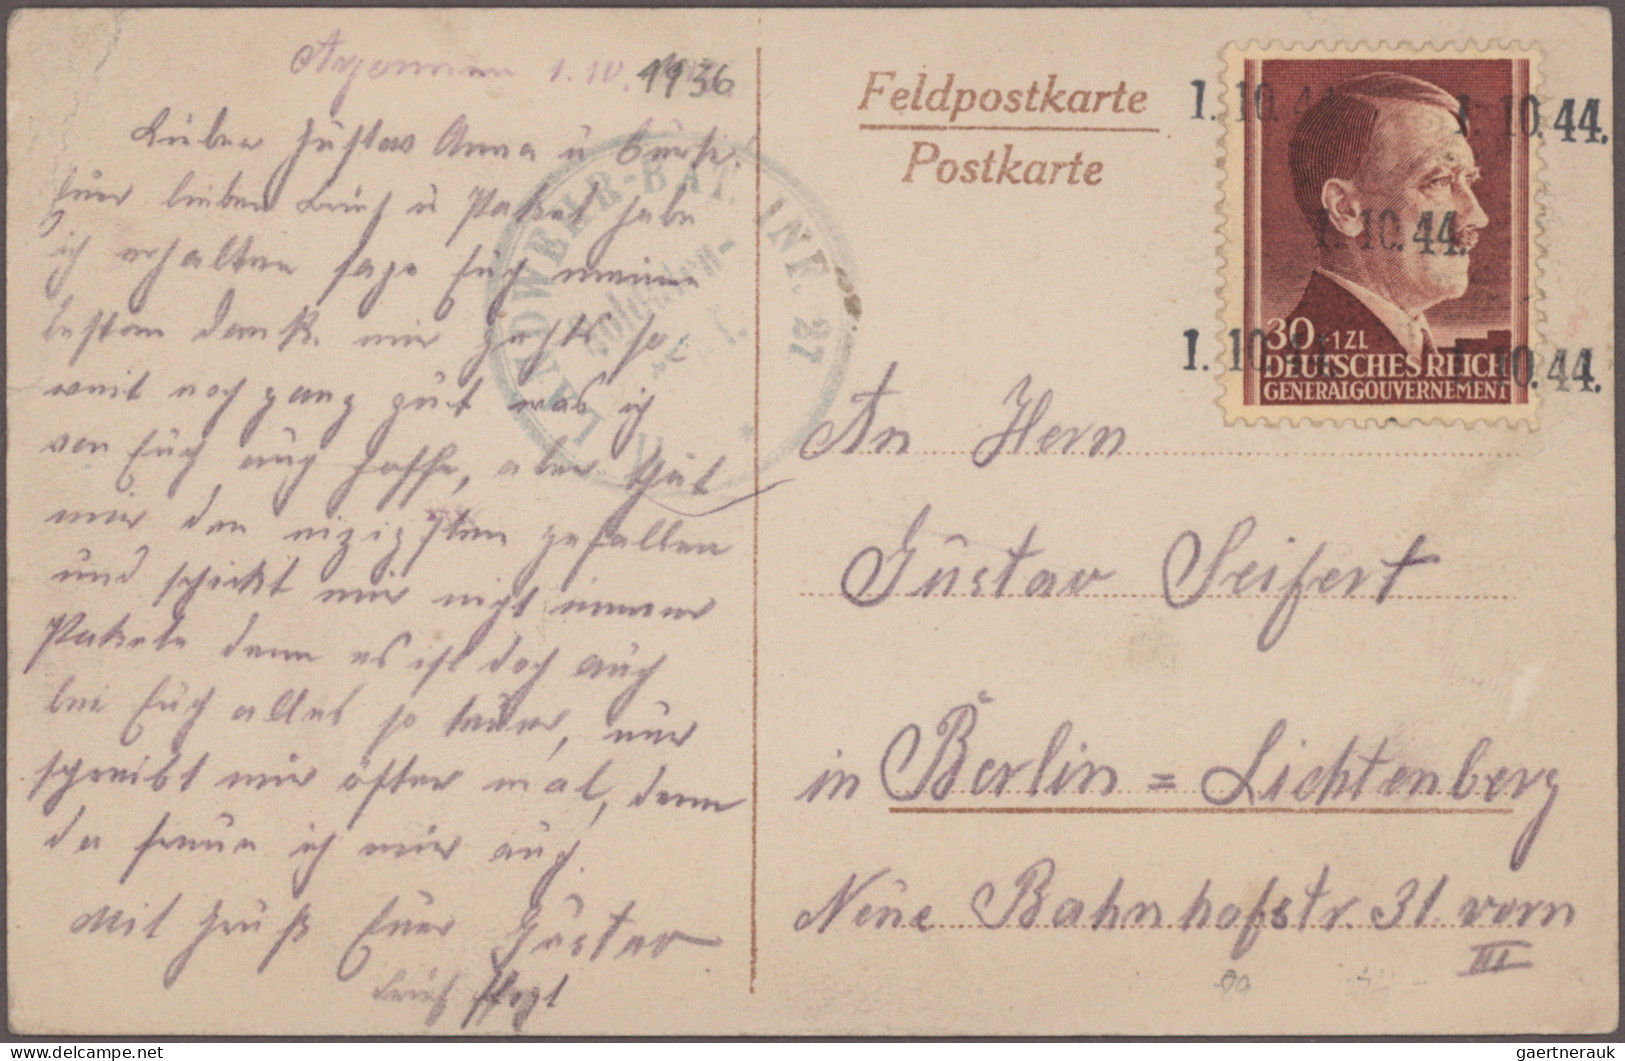 Argonnen 1. IV. 1936
Lieber Gustav Anna u
Euer lieben Brief u Paket habe
ich erhalten sage Euch meinen
besten Dank. mir gehts so
weit noch ganz gut was ich
von Euch auch hoffe, aber thut
mir den einzigsten gefallen
und schickt mir nicht immer
Pakete denn es ist doch auch
bei Euch alles so teuer, nur
schreibt mir öfter mal, denn
da freue ich mir auch.
Mit Gruß Euer Gustav
Brief folgt
LANDWEHR-BAT. INF. 27
Soldaten-
Feldpostkarte
Postkarte
1. 10. 44.
1. 10. 44.
1. 10. 44.
1. 10. 44.
1. 10. 44.
30+1 ZL
DEUTSCHES REICH
GENERALGOUVERNEMENT
An Hern
Gustav Seifert
in Berlin = Lichtenberg
Neue Bahnhofstr. 31 vorn
III
gaertnerauk